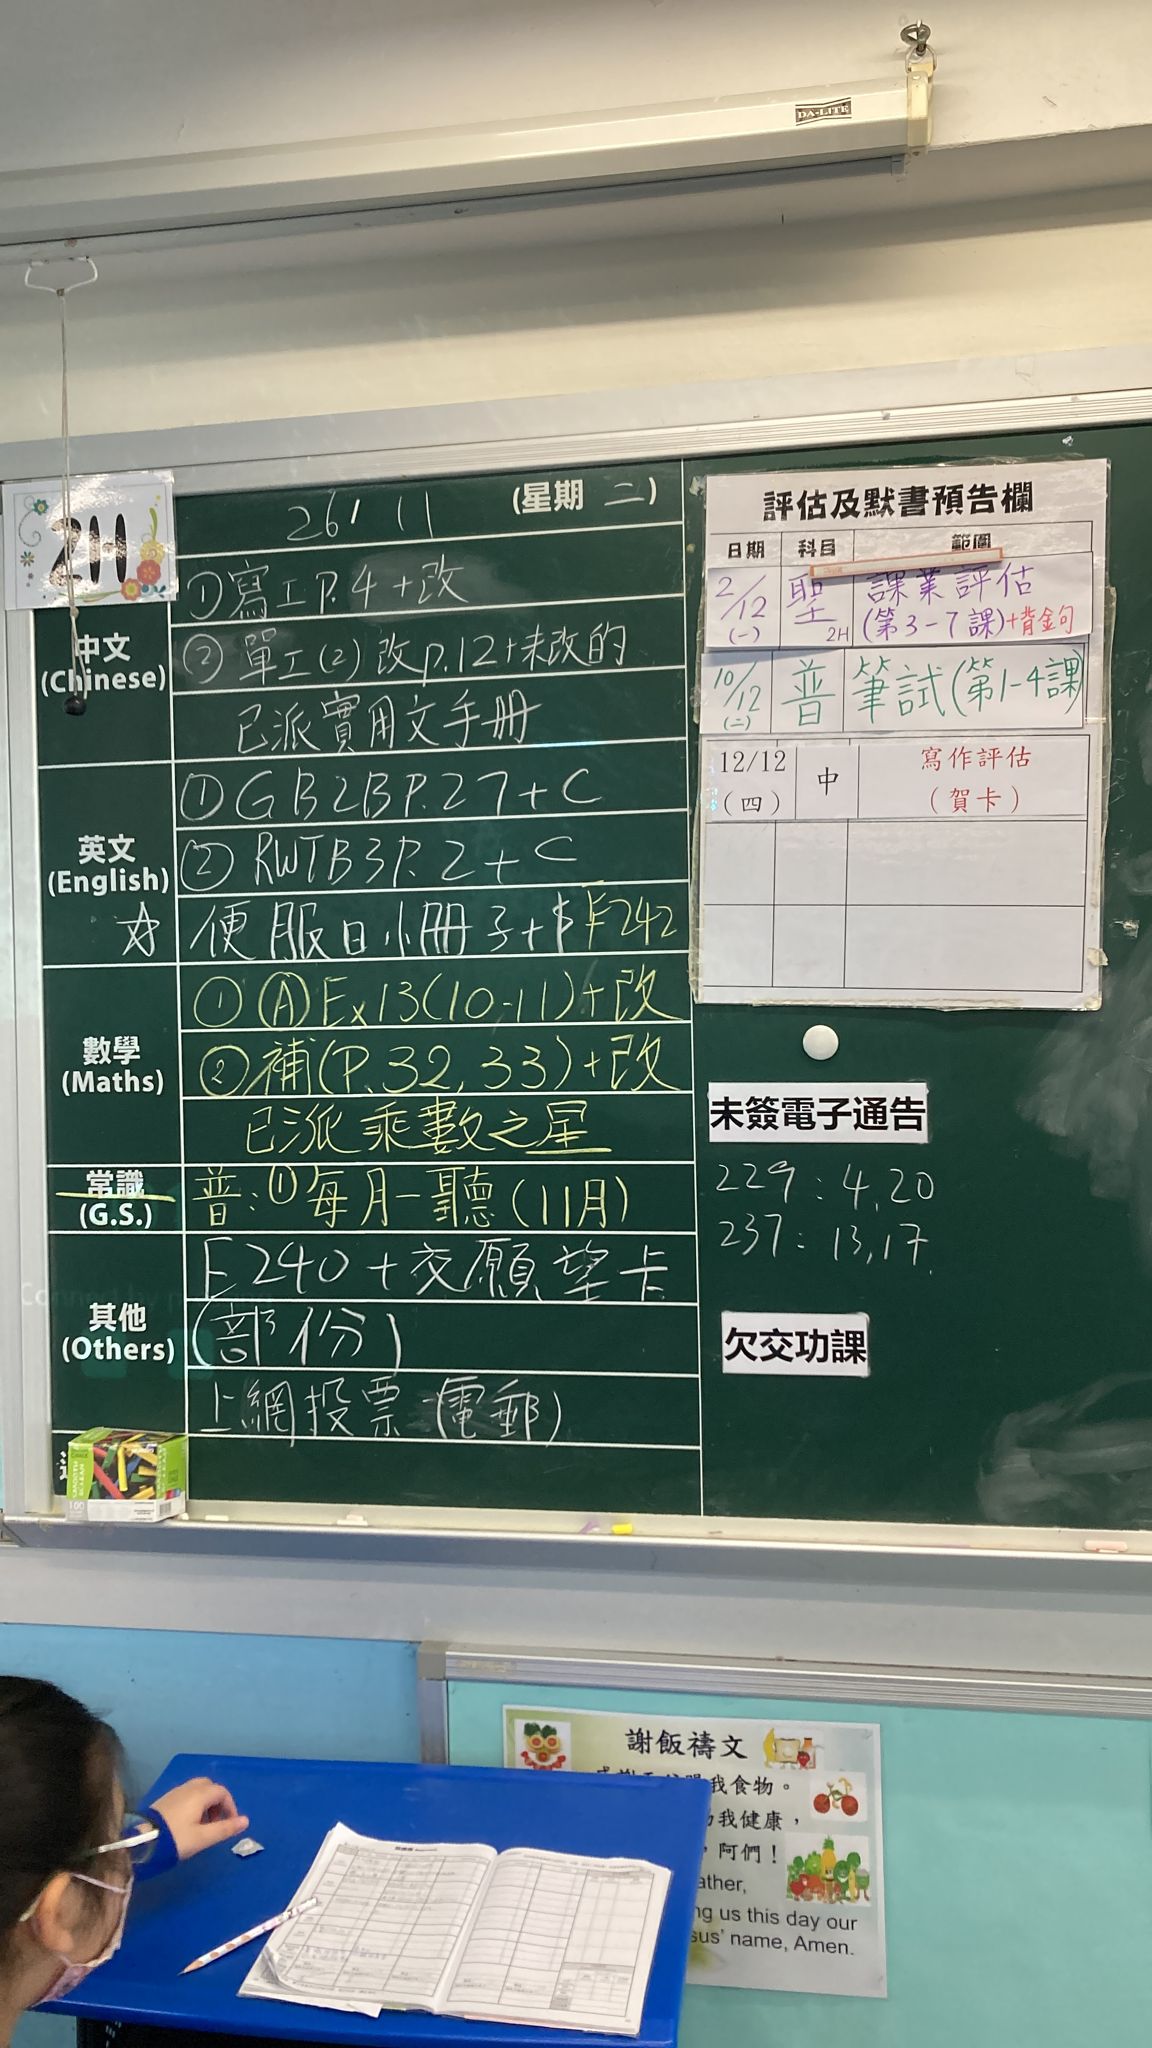 DA-LITE
2H
26/11
(星期 二)
中文
(Chinese)
①寫工P.4+改
②單工(2)改p.12+未改的
已派實用文手冊
英文
(English)
☆
①GB2BP.27+C
②RWTB3P.2+C
便服日小冊子+$ E242
數學
(Maths)
①ⒶEx13(10-11)+改
②補(P.32,33)+改
已派乘數之星
常識
(G.S.)
普:①每月一聽(11月)
其他
(Others)
E240+交願望卡
(部份)
上網投票(電郵)
評估及默書預告欄
日期 科目 範圍
2/12 (一) 聖 2H 課業評估
(第3-7課)+背金句
10/12 (二) 普 筆試(第1-4課)
12/12 (四) 中 寫作評估
(賀卡)
未簽電子通告
229:4,20
237:13,17
欠交功課
100
謝飯禱文
我食物。
我健康,
,阿們!
ather,
ng us this day our
sus' name, Amen.